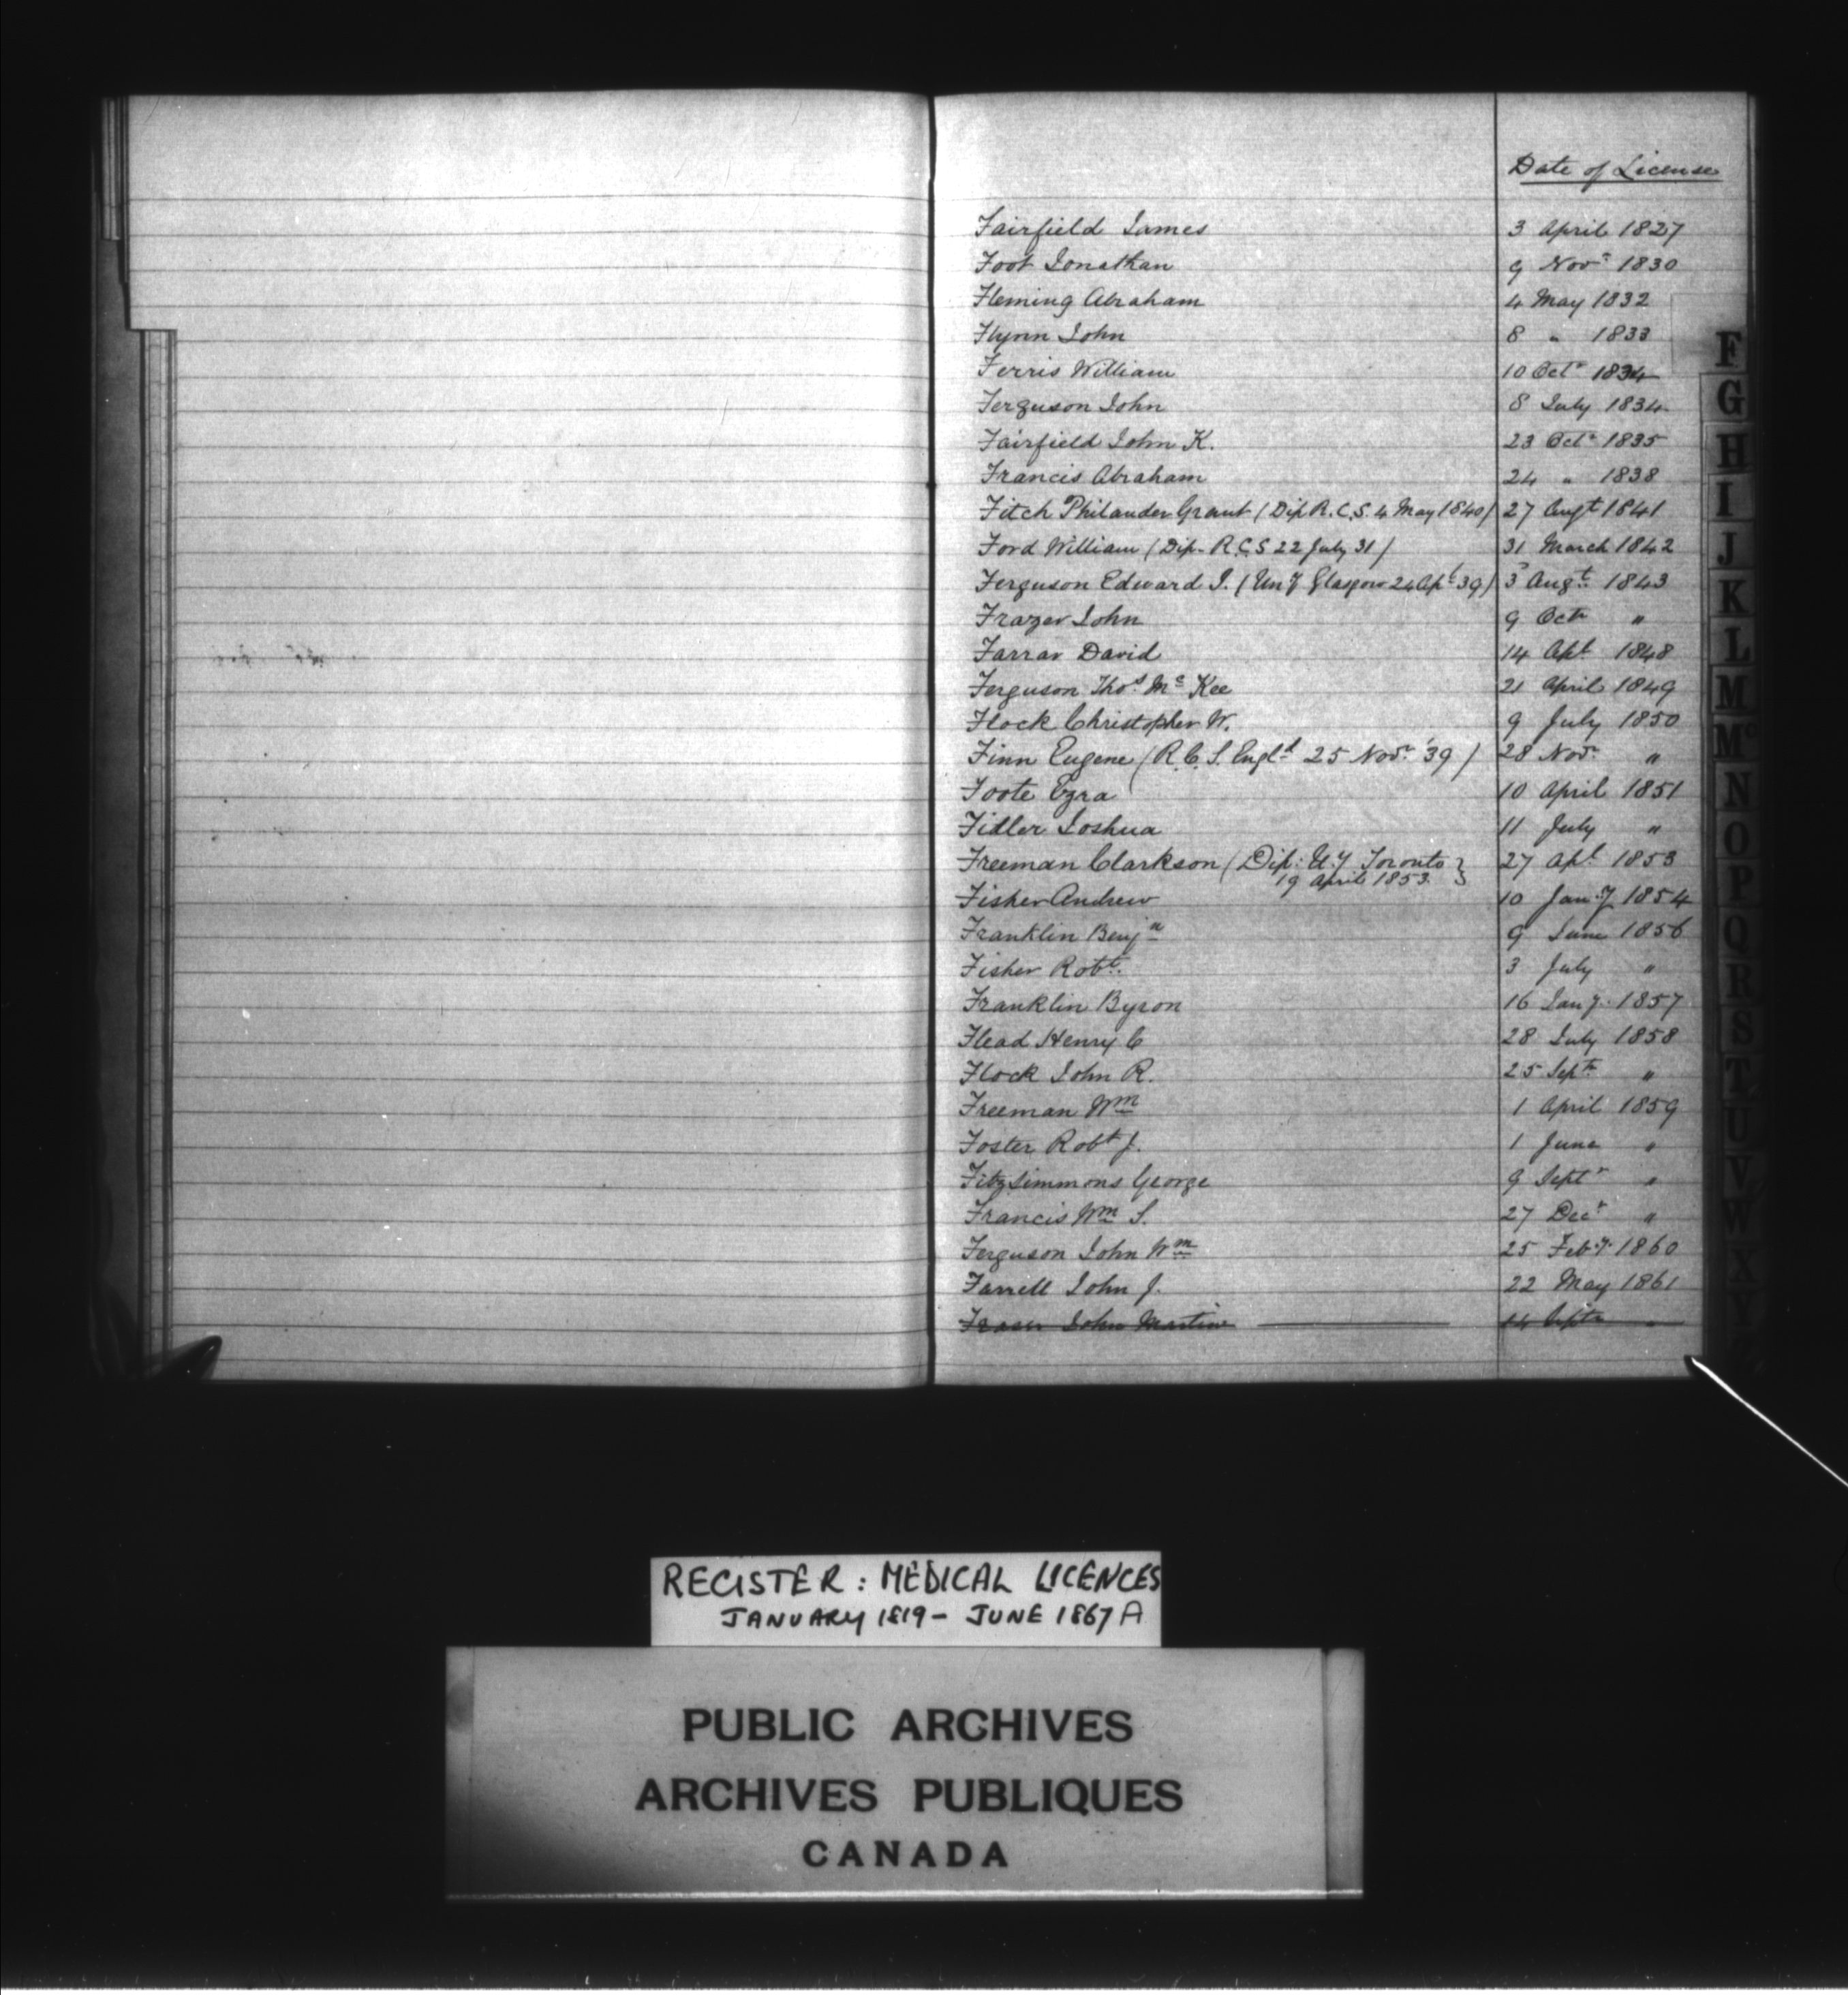 Date of License
Fairfield James 3 April 1827
Foot Jonathan 9 Novr 1830
Fleming Abraham 4 May 1832
Flynn John 8 " 1833
Ferris William 10 Octr 1834
Ferguson John 8 July 1834
Fairfield John K. 23 Octr 1835
Francis Abraham 24 " 1838
Fitch Philander Grant (Dip R.C.S. 4 May 1840) 27 Augt 1841
Ford William (Dip. R.C.S 22 July 31) 31 March 1842
Ferguson Edward I. (Uny Glasgow 24 Apl 39) 3 Augt 1843
Frazer John 9 Octr "
Farrar David 14 Apl 1848
Ferguson Thos Mc Kee 21 April 1849
Flock Christopher W. 9 July 1850
Finn Eugene (R.C.S. Engld 25 Novr '39) 28 Novr "
Foote Ezra 10 April 1851
Fidler Joshua 11 July "
Freeman Clarkson (Dip: U.y Toronto } 27 Apl 1853
19 April 1853.
Fisher Andrew 10 Jany 1854
Franklin Benjn 9 June 1856
Fisher Robt. 3 July "
Franklin Byron 16 Jany. 1857
Flead Henry C 28 July 1858
Flock John R. 25 Septr "
Freeman Wm 1 April 1859
Foster Robt J. 1 June "
Fitzsimmons George 9 Septr "
Francis Wm S. 27 Decr "
Ferguson John Wm 25 Feby. 1860
Farrell John J. 22 May 1861
Fraser John Martin 14 Septr "
F
G
H
I
J
K
L
M
Mc
N
O
P
Q
R
S
T
U
V
W
X
Y
Z
REGISTER: MEDICAL LICENCES
JANUARY 1819 - JUNE 1867 A
PUBLIC ARCHIVES
ARCHIVES PUBLIQUES
CANADA